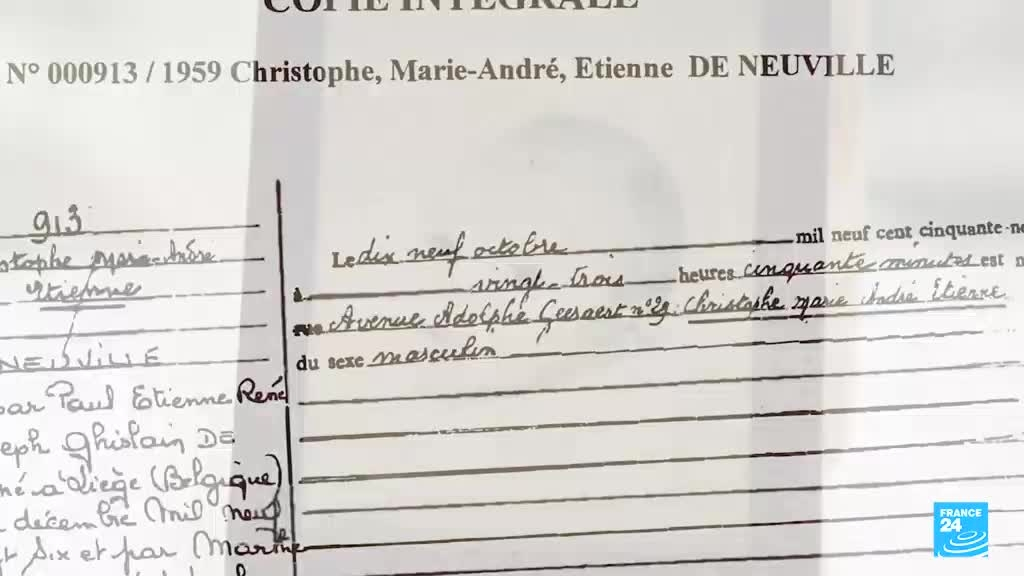 COPIE INTÉGRALE
N° 000913 / 1959 Christophe, Marie-André, Etienne DE NEUVILLE
913
stophe Marie-André
Etienne
NEUVILLE
par Paul Etienne René
seph Ghislain DE
né à Liège (Belgique)
décembre Mil neuf
Six et par Marine
Le dix neuf octobre mil neuf cent cinquante-ne
à vingt-trois heures cinquante minutes est n
Avenue Adolphe n°29: Christophe Marie André Etienne
du sexe masculin
FRANCE
24